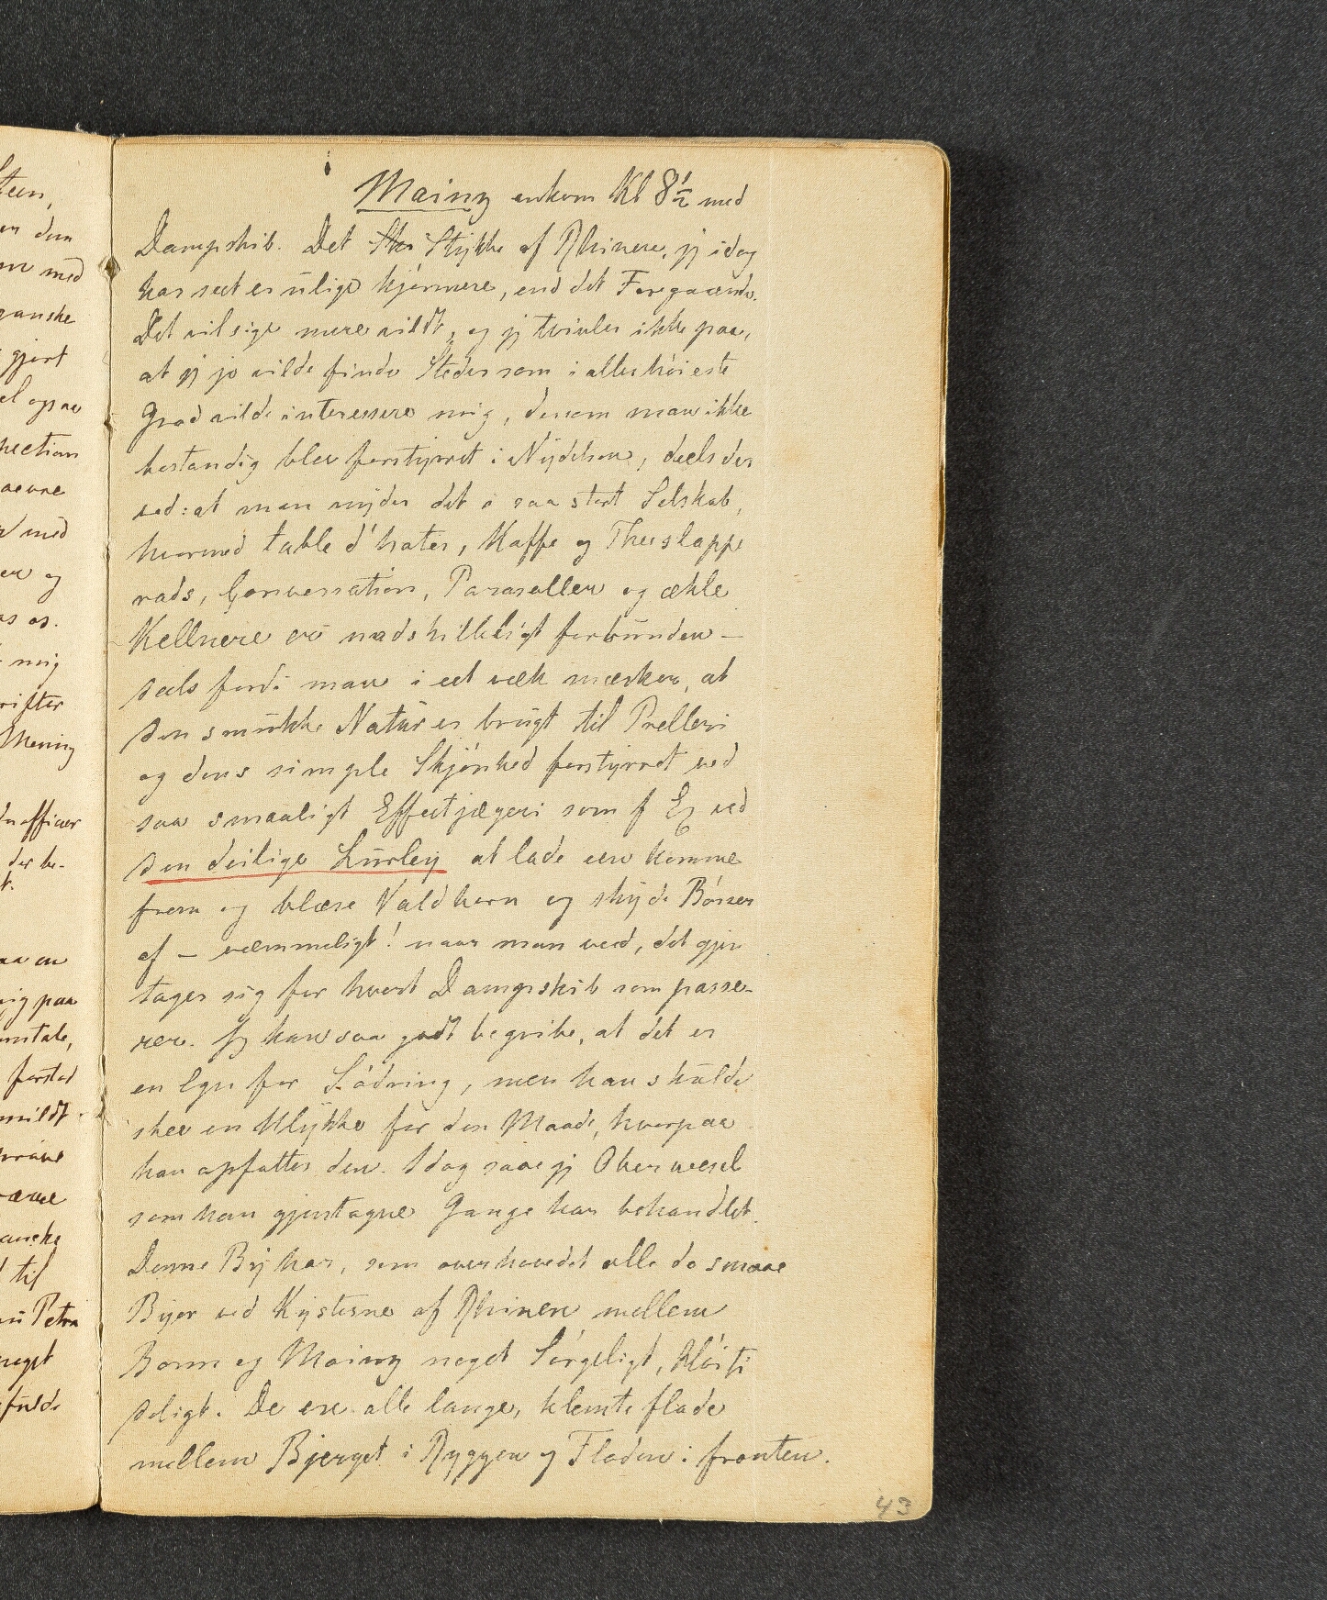 Mainz ankom Kl 8½ med
Dampskib. Det Ske Stykke af Rhinen, jeg idag
har seet er ulige skjönnere, end det Foregaaende.
Det vil sige mere vildt, og jeg tvivler ikke paa,
at jeg jo vilde finde Steder som i allerhöieste
Grad vilde interessere mig, dersom man ikke
bestandig blev forstyrret i Nydelsen, deels der
ved: at man nyder det i saa stort Selskab,
hvormed table d'hoter, Kaffe og Theeslappe
rads, Conversation, Parasoller og ækle
Kellnere ere uadskilleligt forbunden —
deels fordi man i eet væk mærker, at
den smukke Natur er brugt til Prelleri
og dens simple Skjönhed forstyrret ved
saa smaaligt Effectjægeri som f Ex ved
den deilige Lurley at lade een komme
frem og blæse Valdhorn og skyde Bösser
af — væmmeligt! naar man veed, det gjen
tager sig for hvert Dampskib som passe-
rer. Jeg kan saa godt begribe, at det er
en Egn for Södring, men han skulde
skee en Ulykke for den Maade, hvorpaa
han opfatter den. Idag saae jeg Oberwesel
som han gjentagne Gange har behandlet.
Denne By har, som overhovedet alle de smaae
Byer ved Kysterne af Rhinen mellem
Bonn og Mainz noget Sörgeligt,
De ere alle lange, klemte flade
mellem Bjerget i Ryggen og Floden i fronten.
43
Steen,
en den
med
ganske
gjort
med
og
mig
rifter
Mening
der be-
paa
til
Petri